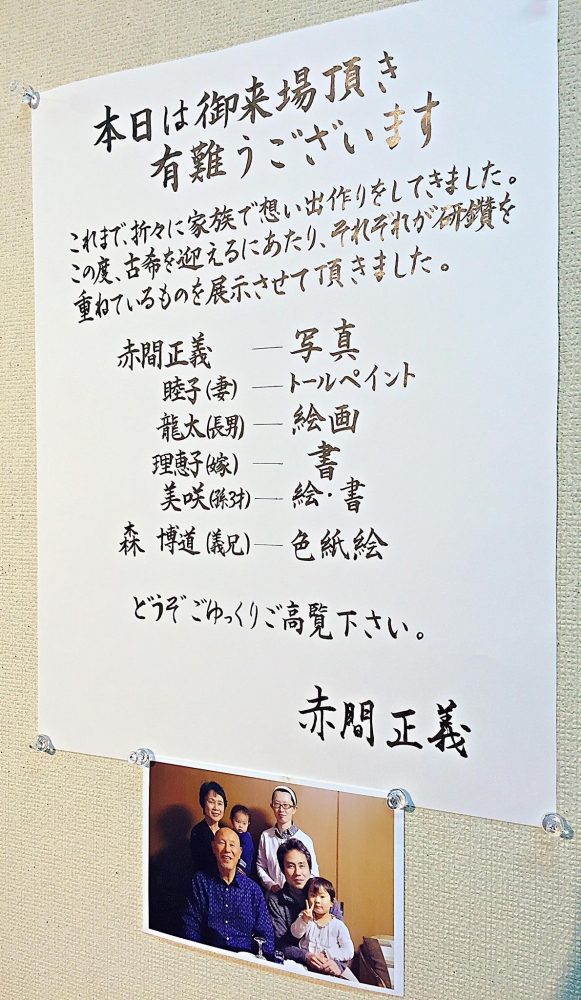 本日は御来場頂き
有難うございます
これまで、折々に家族で想い出作りをしてきました。
この度、古希を迎えるにあたり、それぞれが研鑽を
重ねているものを展示させて頂きました。
赤間正義 ― 写真
睦子(妻) ― トールペイント
龍太(長男) ― 絵画
理恵子(嫁) ― 書
美咲(孫3才) ― 絵・書
森 博道(義兄) ― 色紙絵
どうぞごゆっくりご高覧下さい。
赤間正義